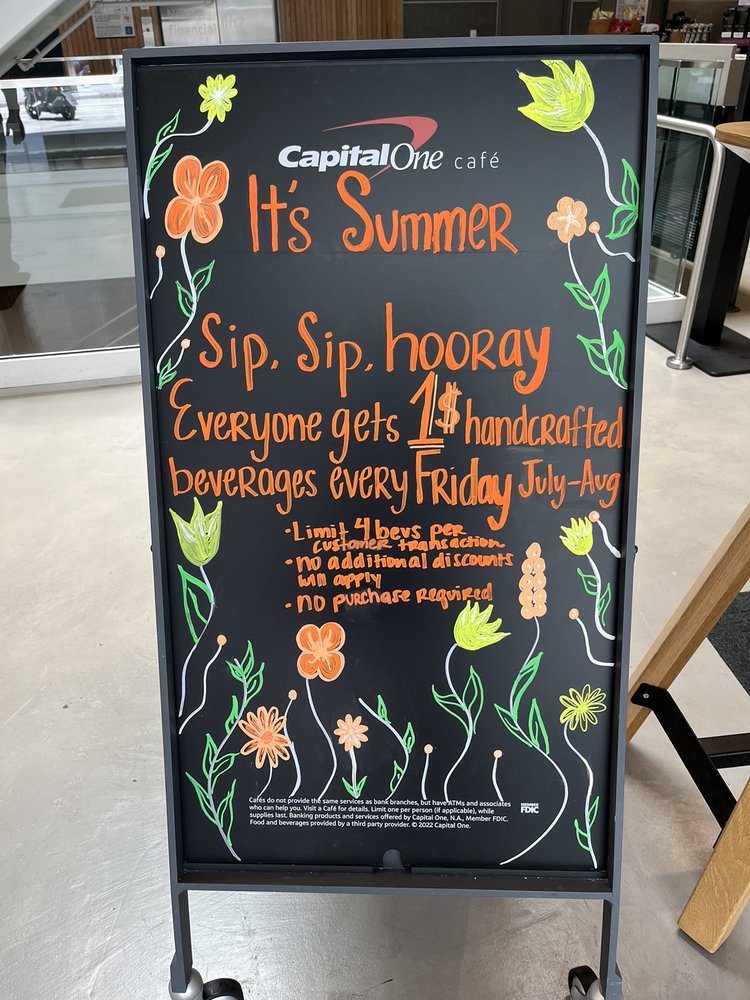 CapitalOne café
It's Summer
Sip, Sip, hooray
Everyone gets 1$ handcrafted
beverages every Friday July-Aug
• Limit 4 bevs per
customer transaction
• no additional discounts
will apply
• no purchase required
Cafés do not provide the same services as bank branches, but have ATMs and associates
who can help you. Visit a Café for details. Limit one per person (if applicable), while
supplies last. Banking products and services offered by Capital One, N.A., Member FDIC.
Food and beverages provided by a third party provider. © 2022 Capital One.
MEMBER
FDIC